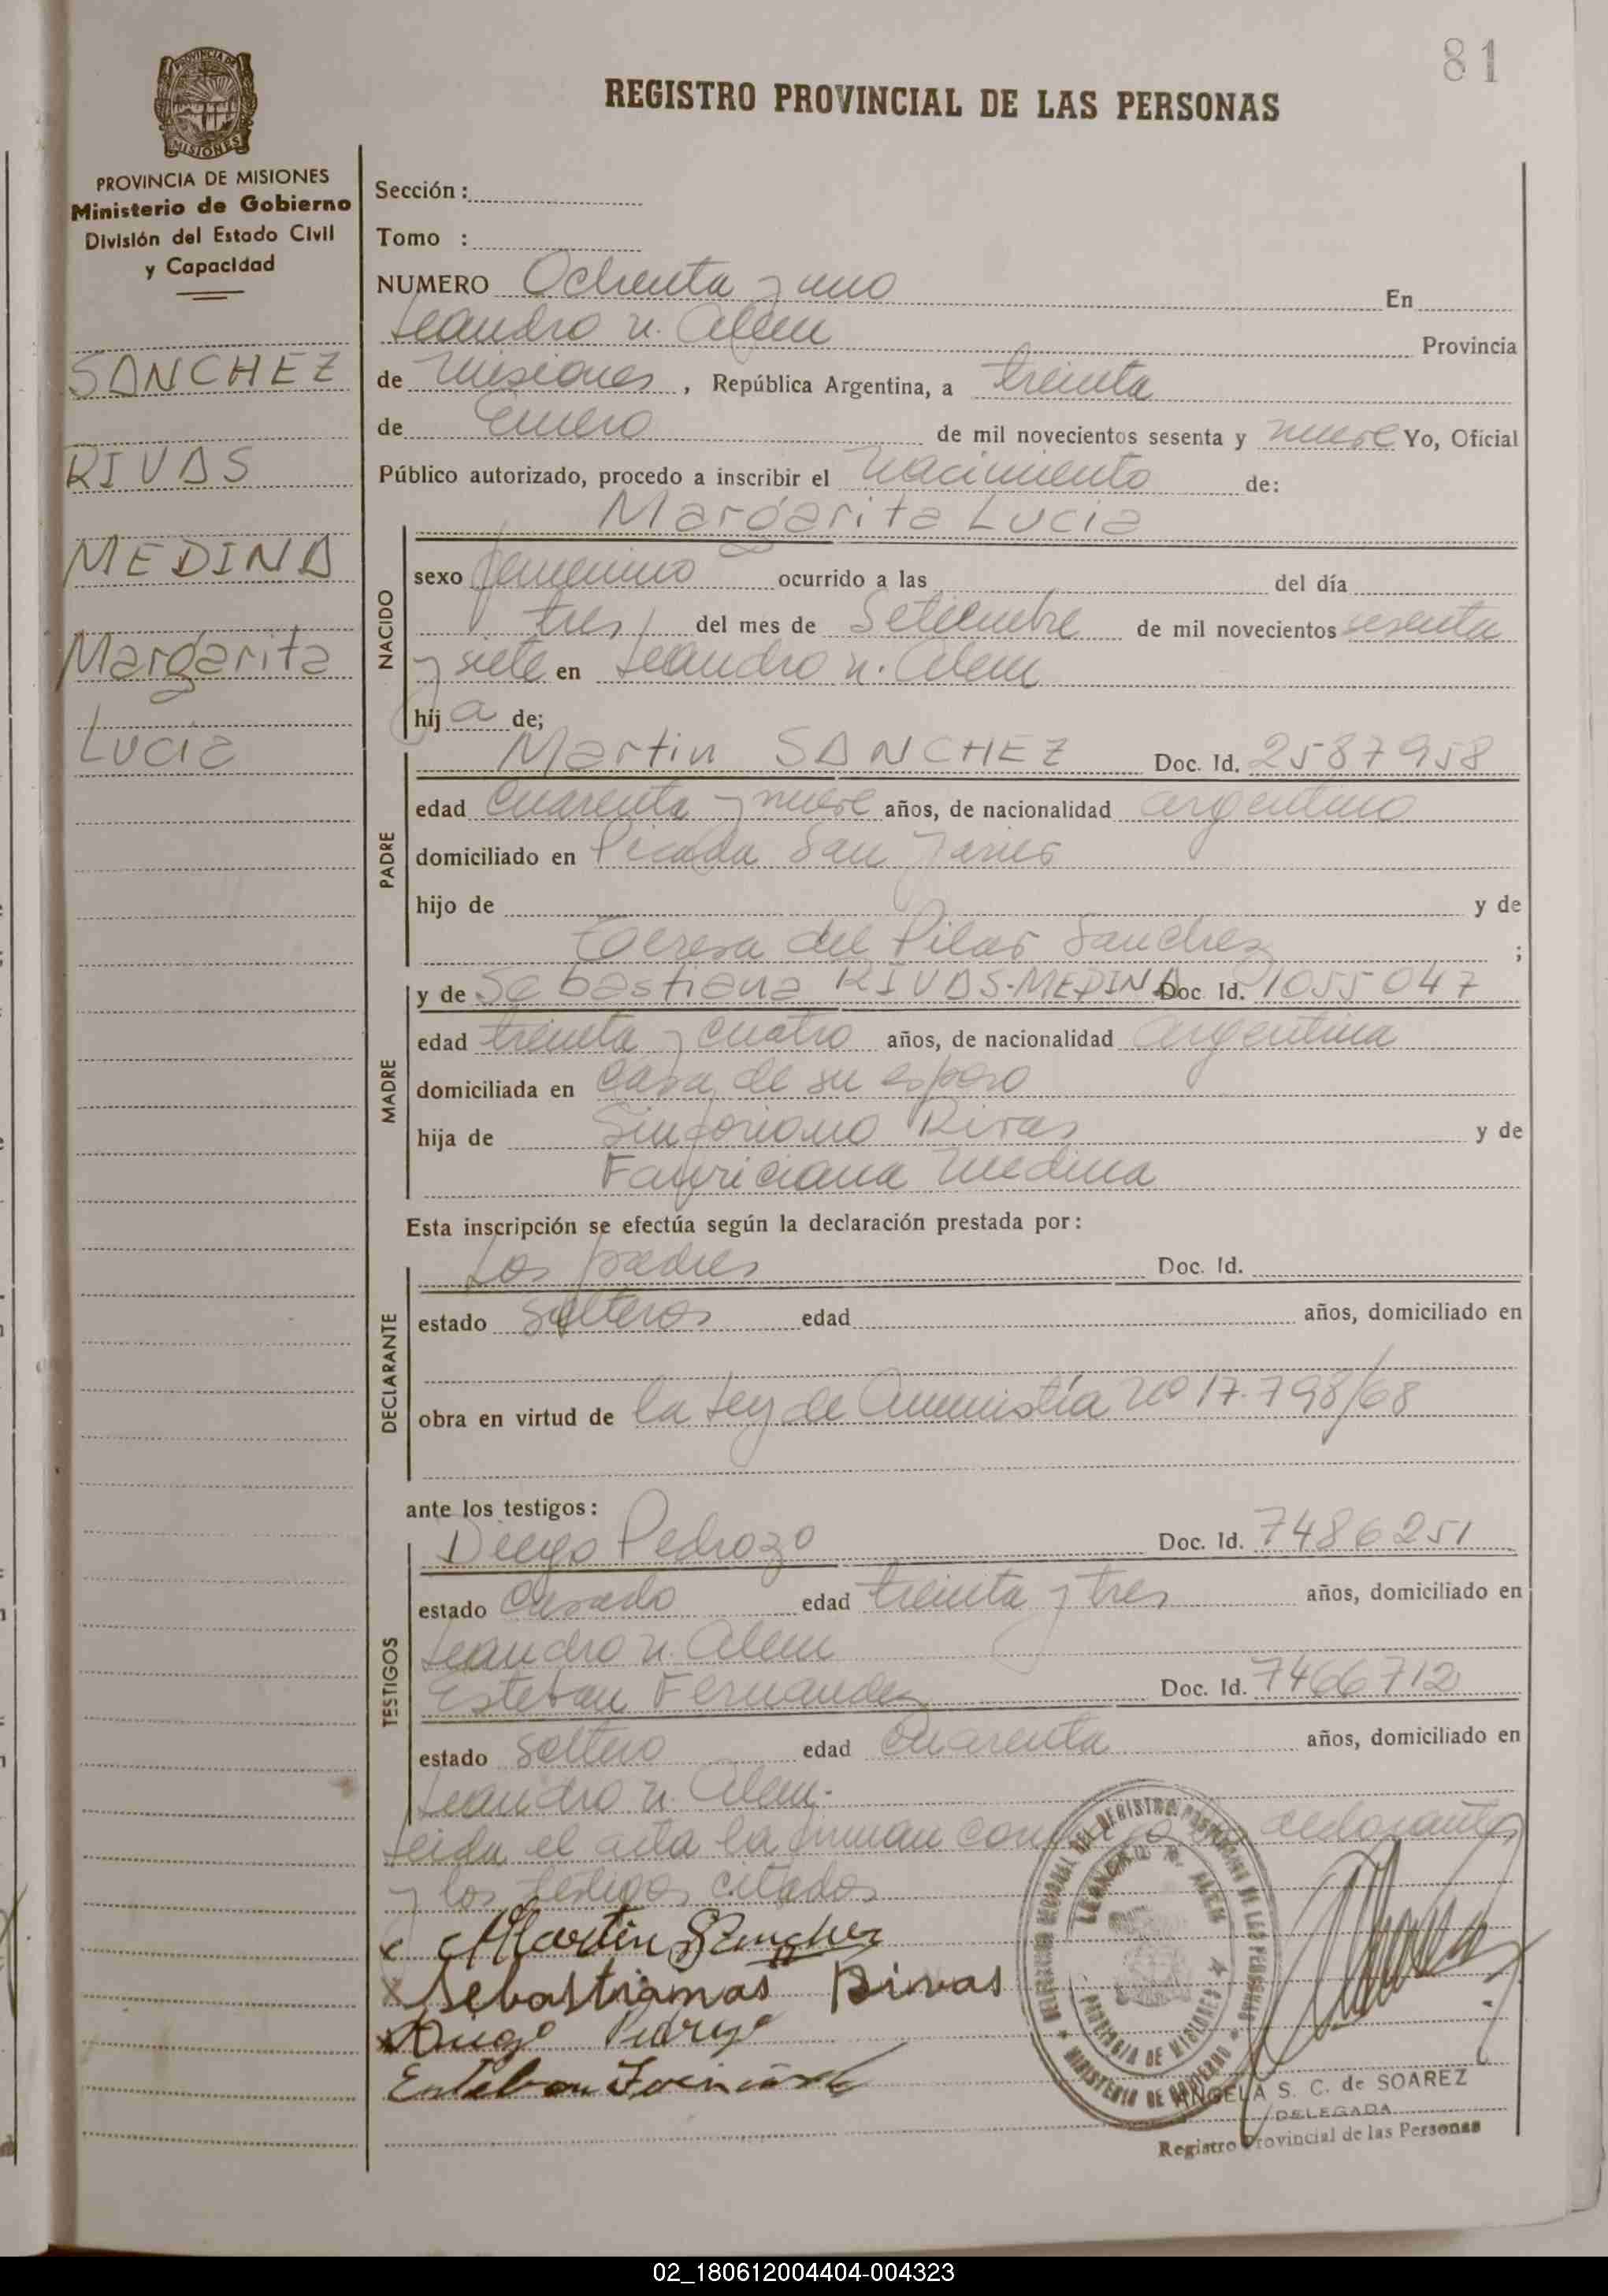 81
REGISTRO PROVINCIAL DE LAS PERSONAS
PROVINCIA DE MISIONES
Ministerio de Gobierno
División del Estado Civil
y Capacidad
SANCHEZ
RIVAS
MEDINA
Margarita
Lucia
Sección :
Tomo :
NUMERO Ochenta y uno En
Leandro N. Alem Provincia
de Misiones, República Argentina, a treinta
de Enero de mil novecientos sesenta y nueve Yo, Oficial
Público autorizado, procedo a inscribir el Nacimiento de:
Margarita Lucia
NACIDO
sexo femenino ocurrido a las del día
tres del mes de Setiembre de mil novecientos sesenta
y siete en Leandro N. Alem
hij a de;
PADRE
Martin SANCHEZ Doc. Id. 2587958
edad cuarenta y nueve años, de nacionalidad argentino
domiciliado en Picada San Javier
hijo de y de
Teresa del Pilar Sanchez ;
MADRE
y de Sebastiana RIVAS-MEDINA Doc. Id. 1055047
edad treinta y cuatro años, de nacionalidad argentina
domiciliada en casa de su esposo
hija de Sinforiano Rivas y de
Fauriciana Medina
Esta inscripción se efectúa según la declaración prestada por:
DECLARANTE
Los padres Doc. Id.
estado solteros edad años, domiciliado en
obra en virtud de la Ley de Amnistía Nº 17.798/68
ante los testigos:
TESTIGOS
Diego Pedrozo Doc. Id. 7486251
estado casado edad treinta y tres años, domiciliado en
Leandro N. Alem
Esteban Fernandez Doc. Id. 7466712
estado soltero edad cuarenta años, domiciliado en
Leandro N. Alem.
Leida el acta la firman declarantes
y los testigos citados
x Martin Sanchez
x Sebastianas Rivas
LEANDRO N. ALEM
PROVINCIA DE MISIONES
MINISTERIO DE GOBIERNO
ANGELA S. C. de SOAREZ
DELEGADA
Registro Provincial de las Personas
02_180612004404-004323